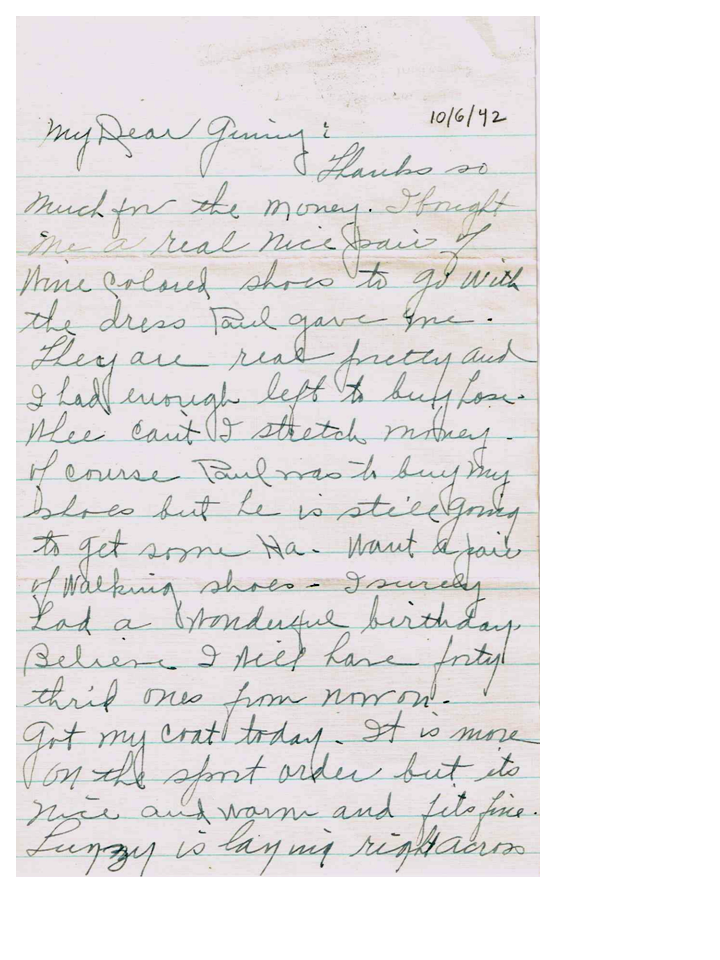 10/6/42
My Dear Ginny:
Thanks so
much for the money. I bought
me a real nice pair of
wine colored shoes to go with
the dress Paul gave me.
They are real pretty and
I had enough left to buy hose.
Whee can't I stretch money.
Of course Paul was to buy my
shoes but he is still going
to get some Ha. Want a pair
of walking shoes - I surely
had a wonderful birthday.
Believe I will have forty
thrid ones from now on.
Got my coat today. It is more
on the sport order but its
nice and warm and fits fine.
is laying right across